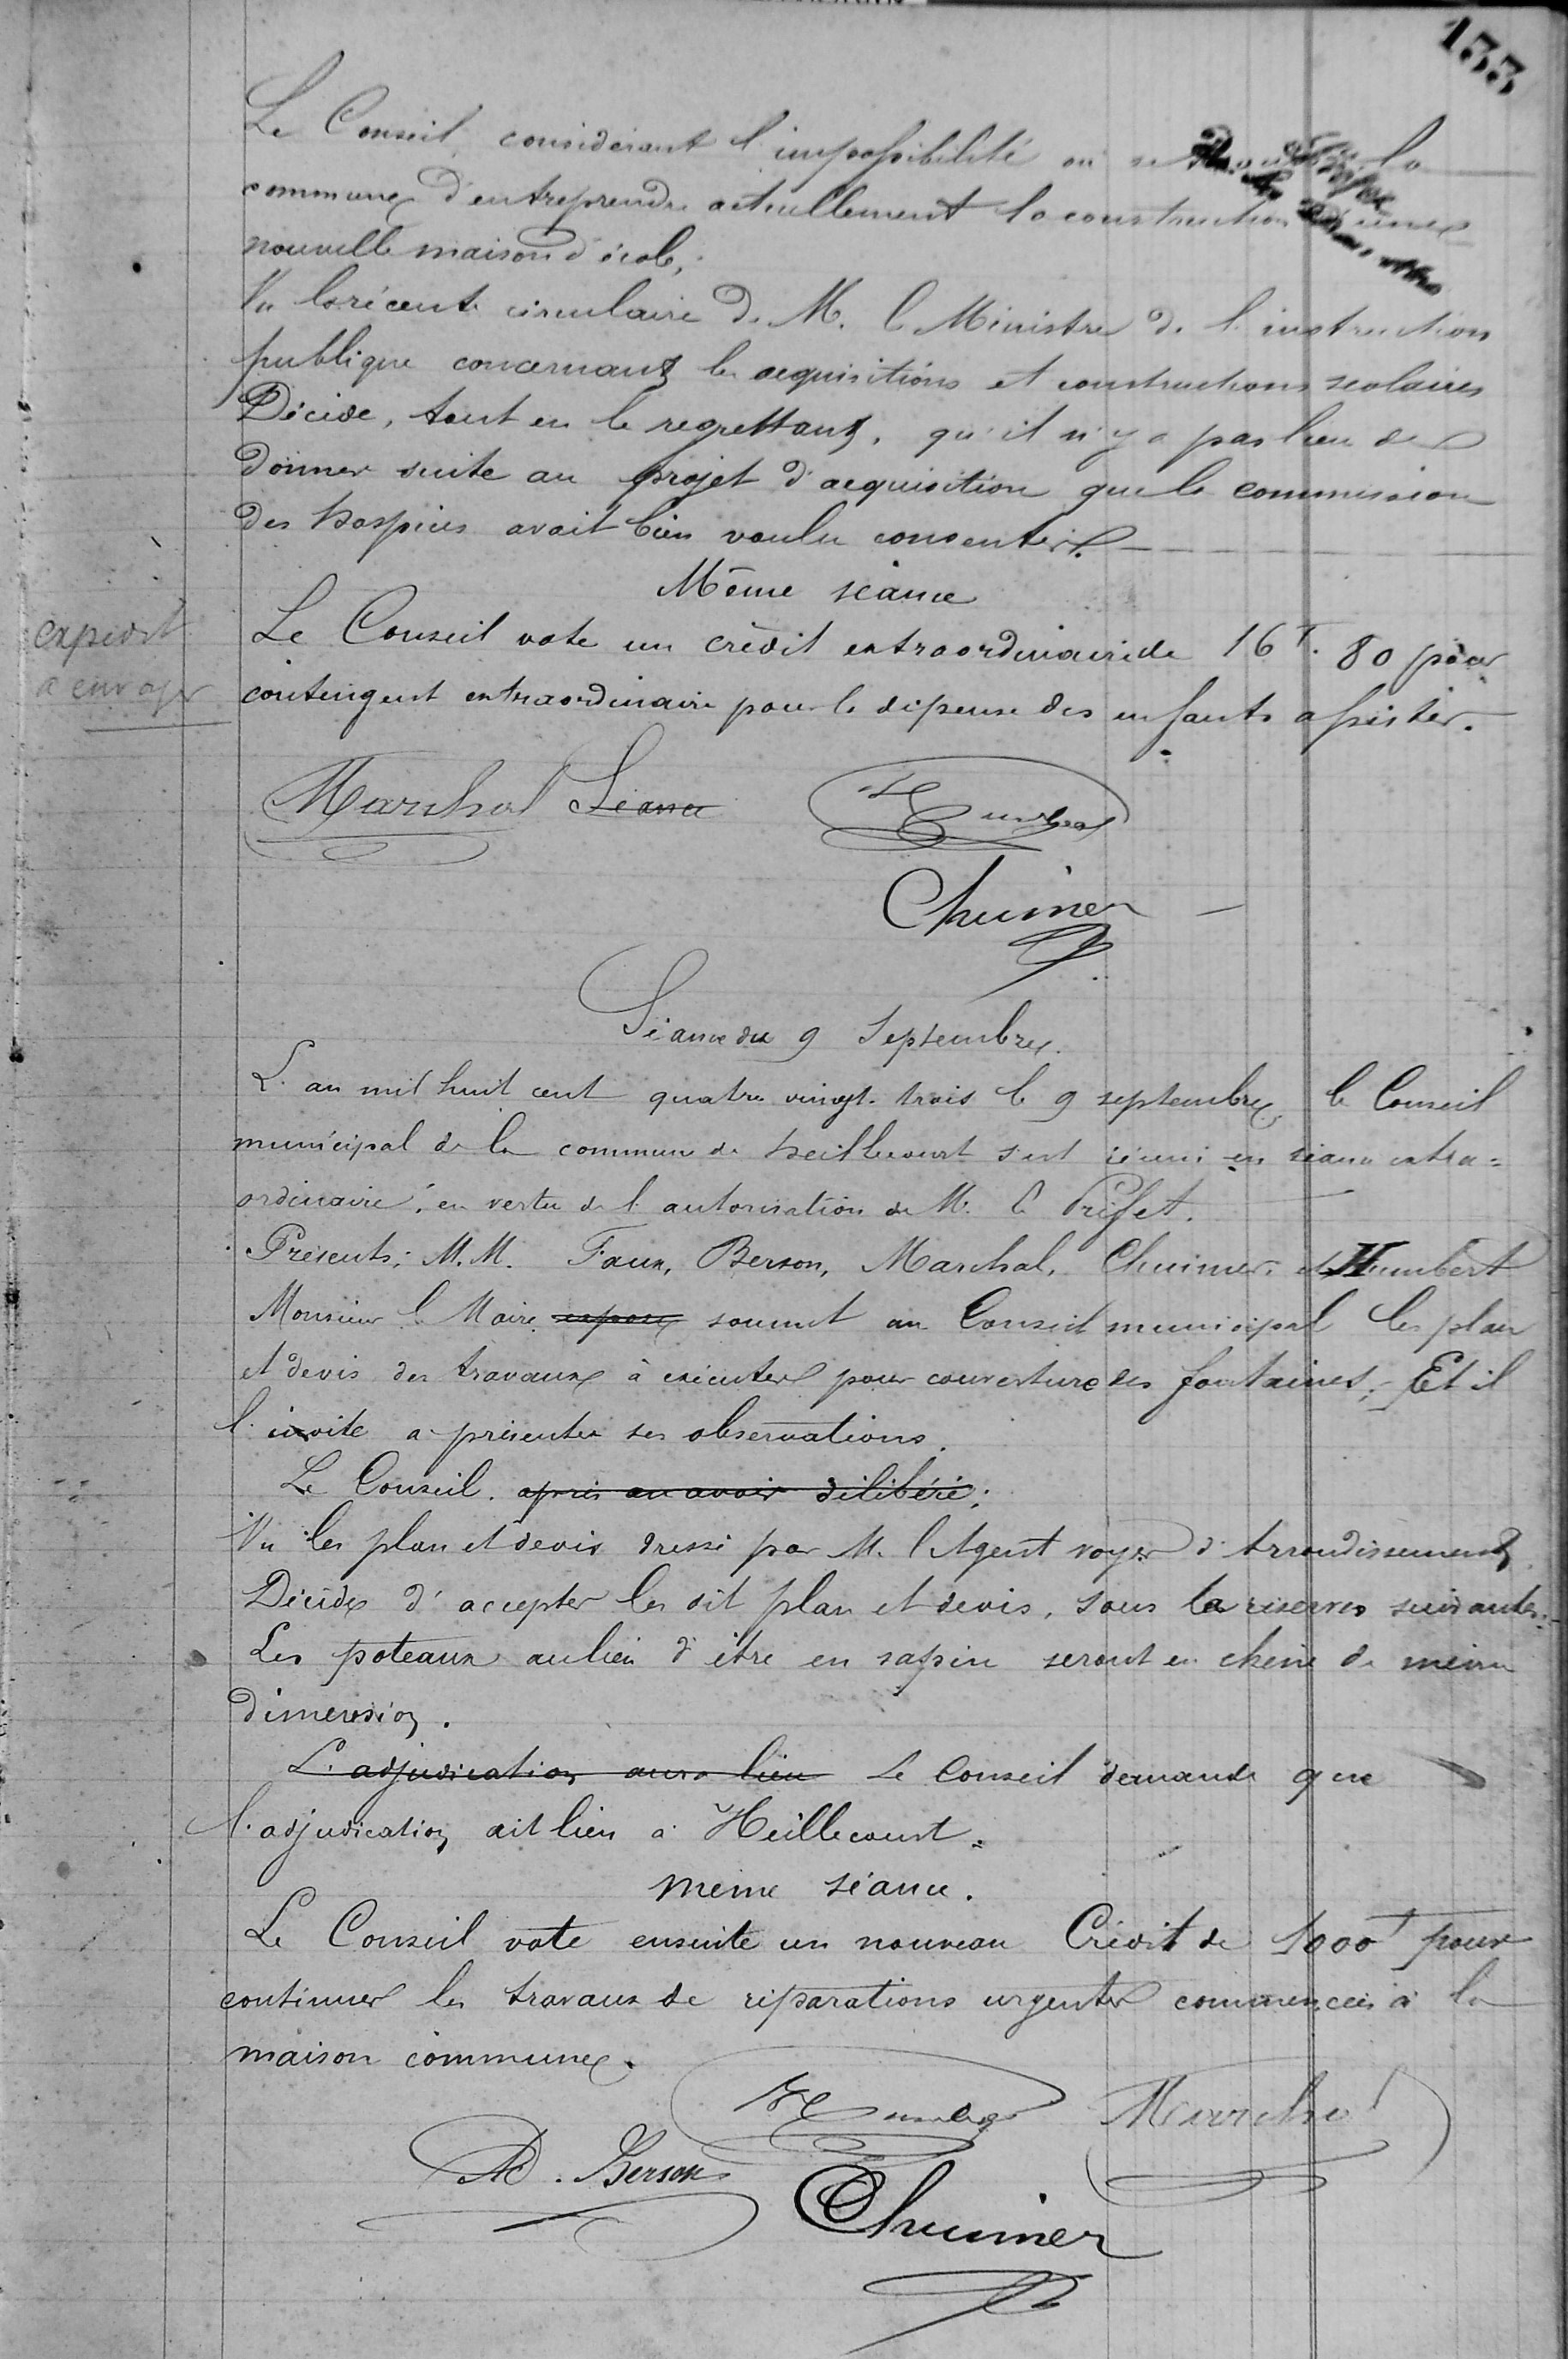 133
Le Conseil, considérant l'impossibilité où se trouve la
commune d'entreprendre actuellement la construction d'une
nouvelle maison d'école,
Vu la récente circulaire de M. le Ministre de l'instruction
publique concernant les acquisitions et constructions scolaires
Décide, tout en le regrettant, qu'il n'y a pas lieu de
donner suite au projet d'acquisition que la commission
des hospices avait bien voulu consentir.
Même séance
expédit
a envoyer
Le Conseil vote un crédit extraordinaire de 16f. 80 pour
contingent extraordinaire pour la dépense des enfants assistés.
Marchal Séance Humbert
Chuiner
Séance du 9 Septembre.
L'an mil huit cent quatre vingt-trois le 9 septembre, le Conseil
municipal de la commune de heillecourt s'est réuni en séance extra=
ordinaire, en vertu de l'autorisation de M. le Préfet.
Présents: M.M. Faux, Berson, Marchal, Chuiner, et Humbert
Monsieur le Maire expose soumet au Conseil municipal les plan
et devis des travaux à exécuter pour couverture des fontaines; Et il
l'invite à présenter ses observations.
Le Conseil. après en avoir délibéré;
Vu les plan et devis dressé par M. l'Agent voyer d'Arrondissement
Décide d'accepter les dit plan et devis, sous la réserves suivantes:
Les poteaux au lieu d'être en sapin seront en chêne de même
dimension.
L'adjudication aura lieu Le Conseil demande que
l'adjudication ait lieu à Heillecourt=
même séance.
Le Conseil vote ensuite un nouveau Crédit de 1000f pour
continuer les travaux de réparations urgentes commencées à la
maison commune.
Humbert Marchal
Ad. Berson
Chuiner